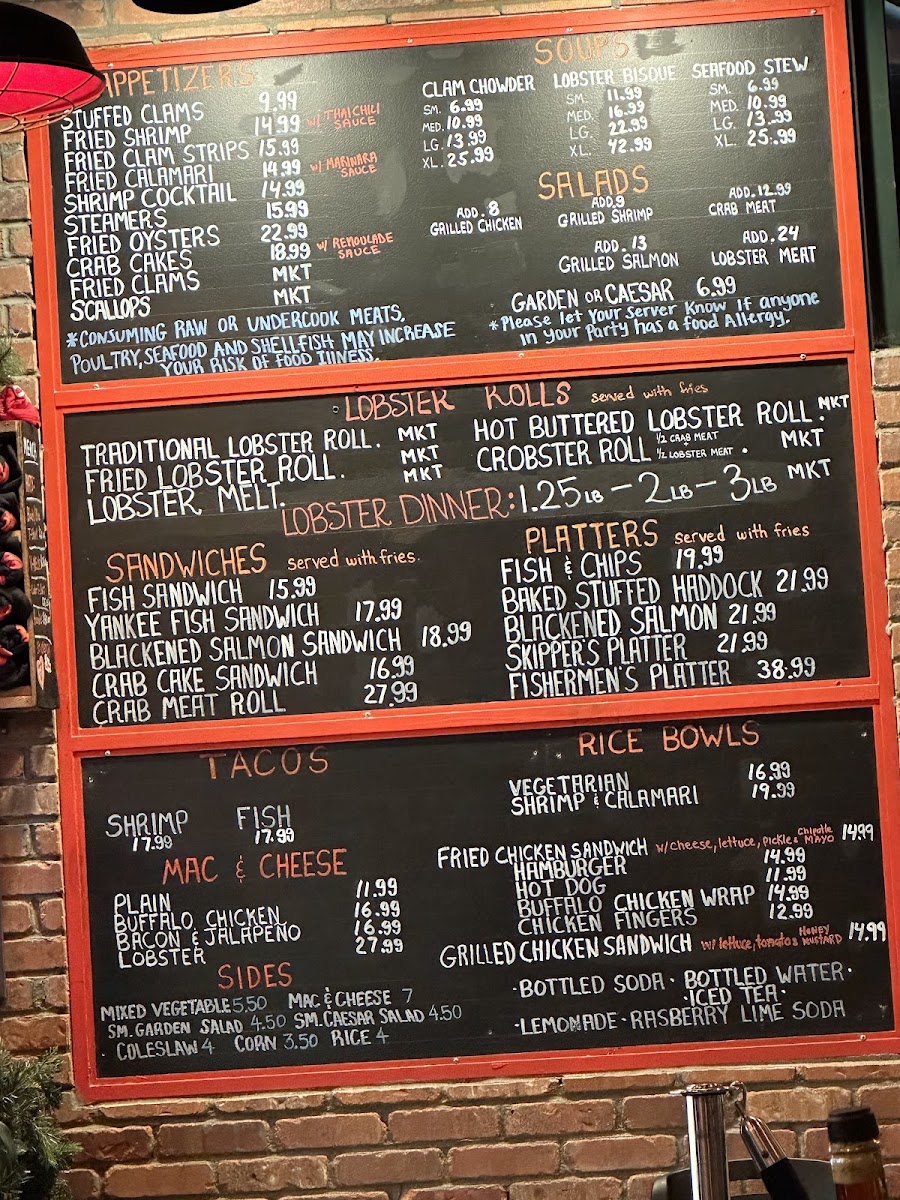 APPETIZERS
STUFFED CLAMS 9.99
FRIED SHRIMP 14.99 w/ THAI CHILI SAUCE
FRIED CLAM STRIPS 15.99
FRIED CALAMARI 14.99 w/ MARINARA SAUCE
SHRIMP COCKTAIL 14.99
STEAMERS 15.99
FRIED OYSTERS 22.99
CRAB CAKES 18.99 w/ REMOULADE SAUCE
FRIED CLAMS MKT
SCALLOPS MKT
*CONSUMING RAW OR UNDERCOOK MEATS,
POULTRY, SEAFOOD AND SHELLFISH MAY INCREASE
YOUR RISK OF FOOD ILLNESS.
SOUPS
CLAM CHOWDER
SM. 6.99
MED. 10.99
LG. 13.99
XL. 25.99
LOBSTER BISQUE
SM. 11.99
MED. 16.99
LG. 22.99
XL. 42.99
SEAFOOD STEW
SM. 6.99
MED. 10.99
LG. 13.99
XL. 25.99
SALADS
ADD. 8
GRILLED CHICKEN
ADD. 9
GRILLED SHRIMP
ADD. 12.99
CRAB MEAT
ADD. 13
GRILLED SALMON
ADD. 24
LOBSTER MEAT
GARDEN OR CAESAR 6.99
*Please let your server know if anyone
in your party has a food Allergy.
LOBSTER ROLLS served with fries
TRADITIONAL LOBSTER ROLL. MKT
FRIED LOBSTER ROLL. MKT
LOBSTER MELT. MKT
HOT BUTTERED LOBSTER ROLL. MKT
CROBSTER ROLL 1/2 CRAB MEAT 1/2 LOBSTER MEAT. MKT
LOBSTER DINNER: 1.25LB - 2LB - 3LB MKT
SANDWICHES served with fries
FISH SANDWICH 15.99
YANKEE FISH SANDWICH 17.99
BLACKENED SALMON SANDWICH 18.99
CRAB CAKE SANDWICH 16.99
CRAB MEAT ROLL 27.99
PLATTERS served with fries
FISH & CHIPS 19.99
BAKED STUFFED HADDOCK 21.99
BLACKENED SALMON 21.99
SKIPPER'S PLATTER 21.99
FISHERMEN'S PLATTER 38.99
TACOS
SHRIMP FISH
17.99 17.99
MAC & CHEESE
PLAIN 11.99
BUFFALO CHICKEN 16.99
BACON & JALAPEÑO 16.99
LOBSTER 27.99
SIDES
MIXED VEGETABLE 5.50 MAC & CHEESE 7
SM. GARDEN SALAD 4.50 SM. CAESAR SALAD 4.50
COLESLAW 4 CORN 3.50 RICE 4
RICE BOWLS
VEGETARIAN 16.99
SHRIMP & CALAMARI 19.99
FRIED CHICKEN SANDWICH w/ cheese, lettuce, pickle & Chipotle MAYO 14.99
HAMBURGER 14.99
HOT DOG 11.99
BUFFALO CHICKEN WRAP 14.99
CHICKEN FINGERS 12.99
GRILLED CHICKEN SANDWICH w/ lettuce, tomato & HONEY MUSTARD 14.99
·BOTTLED SODA· BOTTLED WATER·
·ICED TEA·
·LEMONADE·RASBERRY LIME SODA